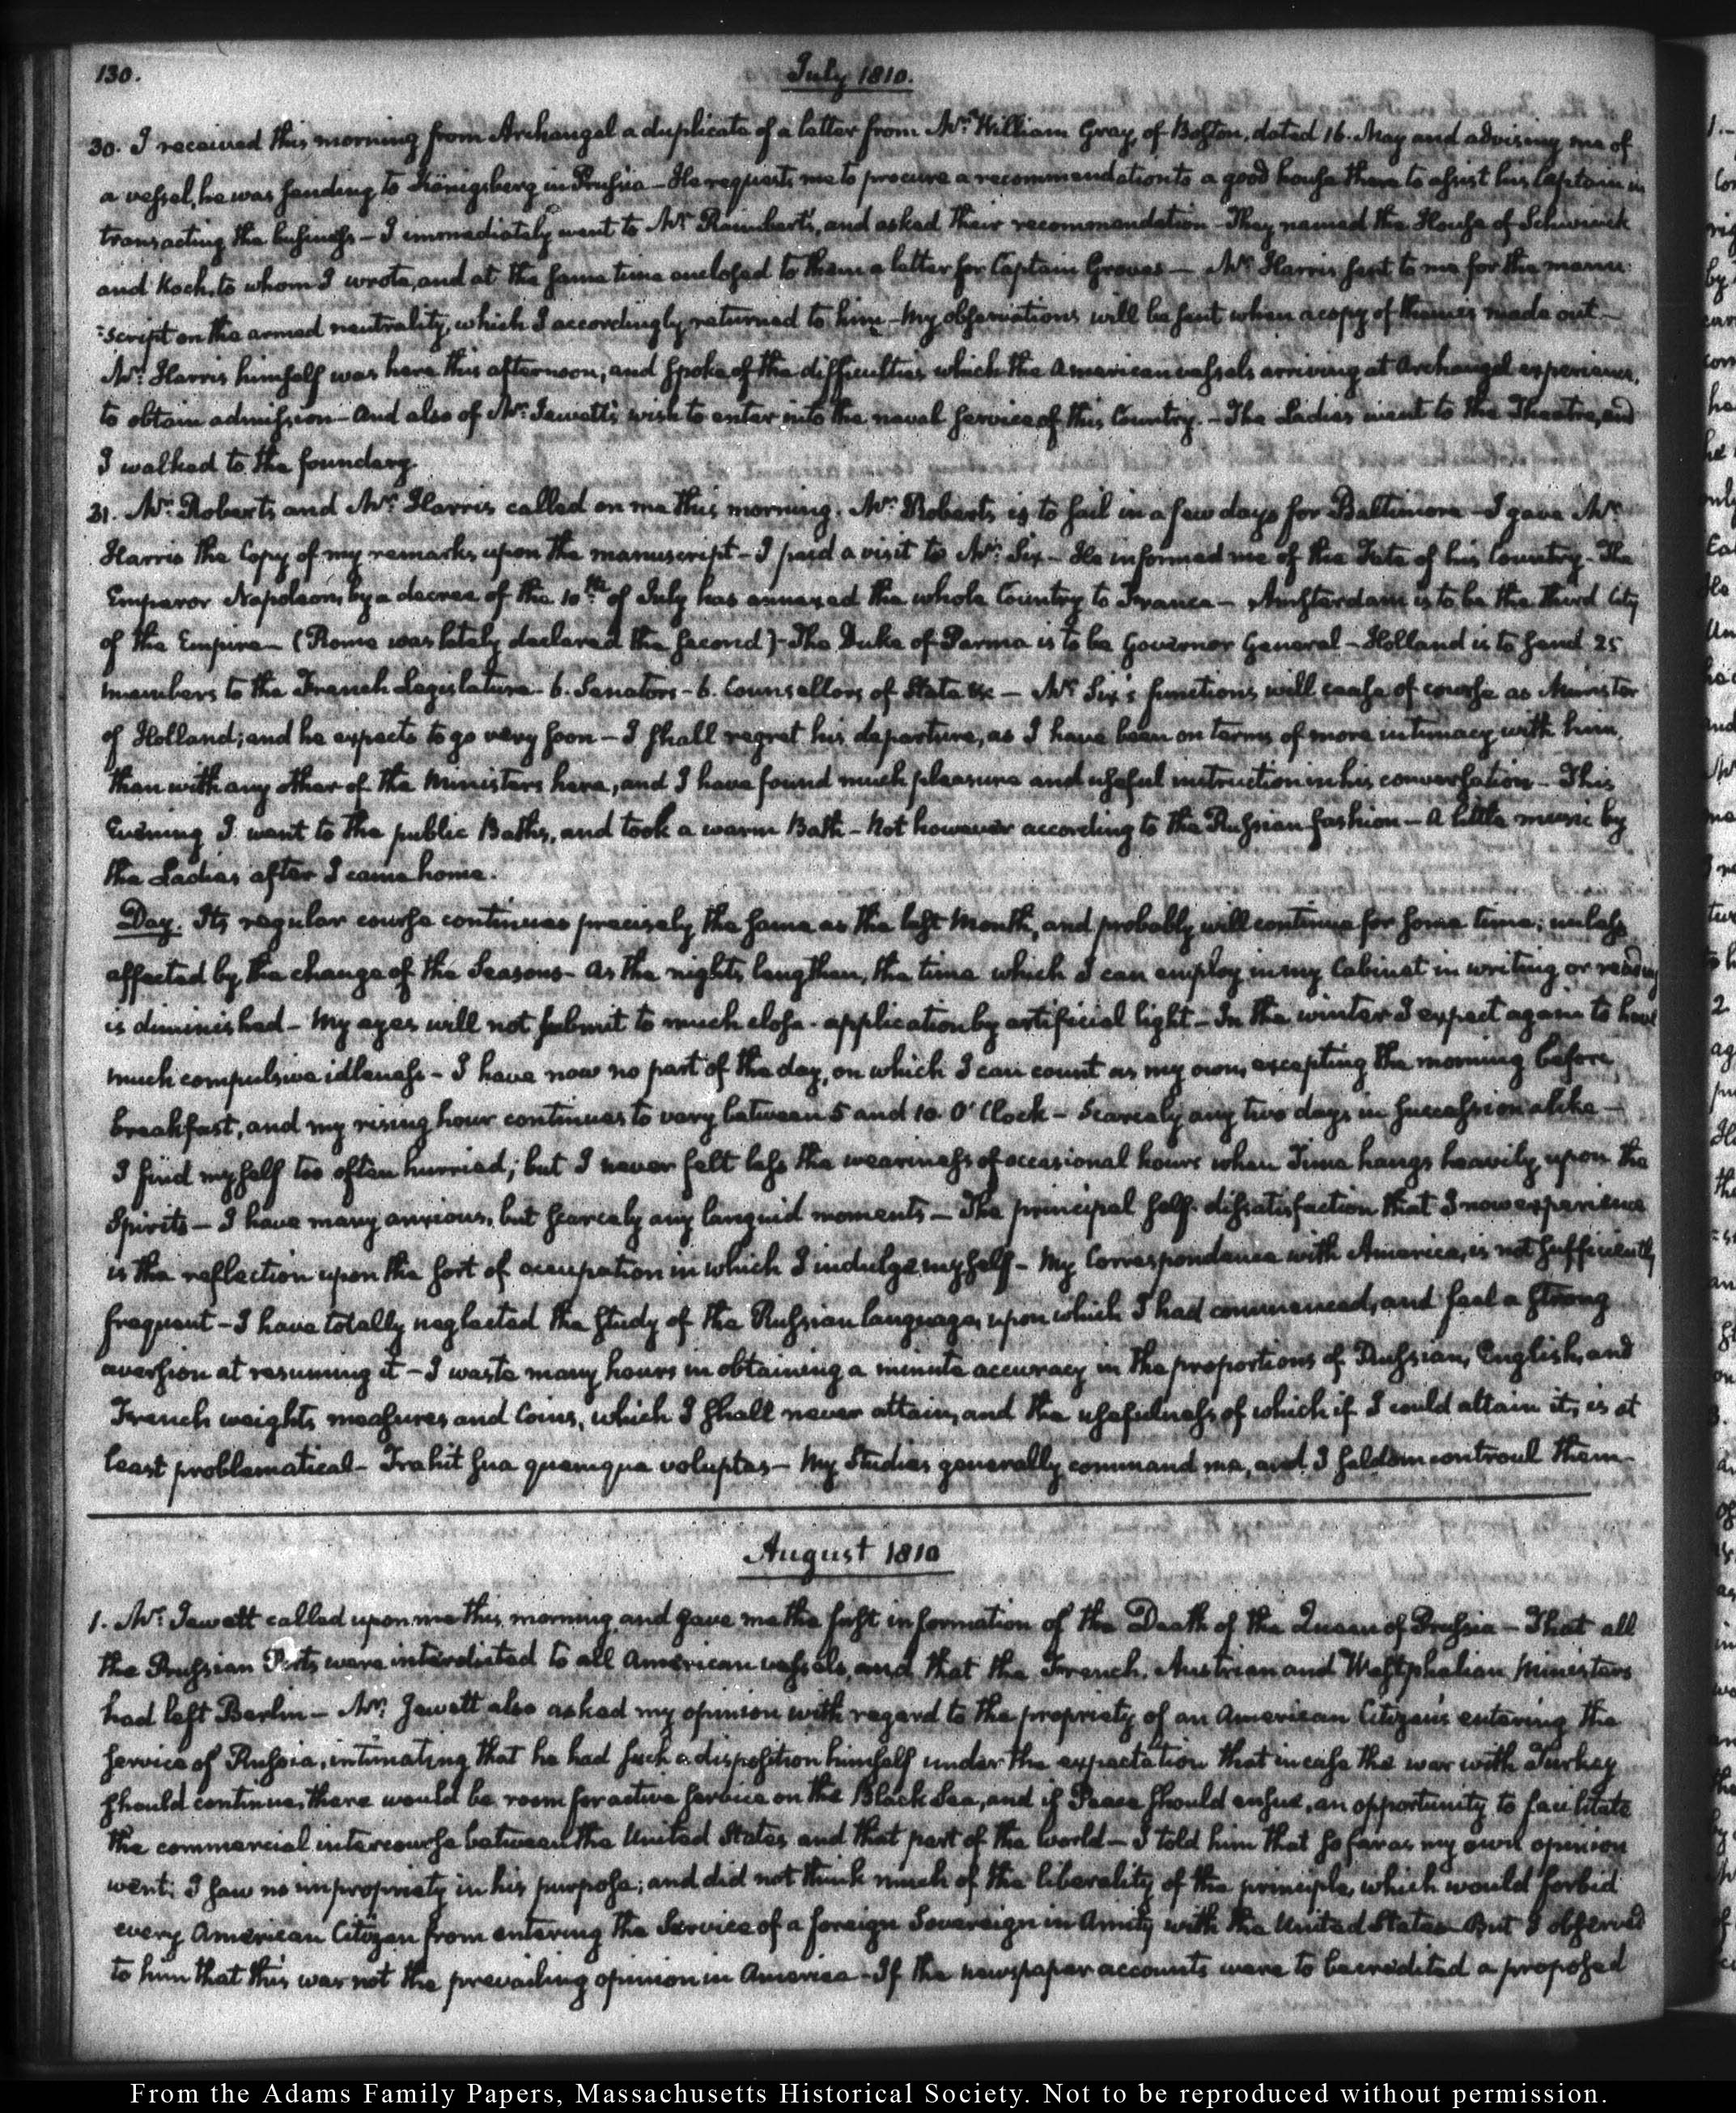 130.
July 1810.
30. I received this morning from Archangel a duplicate of a letter from Mr. William Gray, of Boston, dated 16. May and advising me of
a vessel, he was sending to Königsberg in Prussia — He requests me to procure a recommendation to a good house there to assist his Captain in
transacting the business — I immediately went to Mr Raimbert's, and asked their recommendation — They named the House of Schwinck
and Koch, to whom I wrote, and at the same time enclosed to them a letter for Captain Groves — Mr. Harris sent to me for the manu-
-script on the armed neutrality, which I accordingly returned to him — My observations will be sent when a copy of them is made out —
Mr. Harris himself was here this afternoon, and spoke of the difficulties which the American vessels arriving at Archangel experience,
to obtain admission — And also of Mr. Jewett's wish to enter into the naval service of this Country. — The Ladies went to the Theatre, and
I walked to the foundery.
31. Mr. Roberts and Mr. Harris called on me this morning. Mr. Roberts is to sail in a few days for Baltimore — I gave Mr
Harris the Copy of my remarks upon the manuscript — I paid a visit to Mr. Six — He informed me of the Fate of his Country — The
Emperor Napoleon, by a decree of the 10th. of July has annexed the whole Country to France — Amsterdam is to be the third City
of the Empire — (Rome was lately declared the second) — The Duke of Parma is to be Governor General — Holland is to send 25
members to the French Legislature — 6. Senators — 6. Counsellors of State &c — Mr Six's functions will cease of course as Minister
of Holland; and he expects to go very soon — I shall regret his departure, as I have been on terms of more intimacy with him,
than with any other of the Ministers here, and I have found much pleasure and useful instruction in his conversation — This
Evening I went to the public Baths, and took a warm Bath — Not however according to the Russian fashion — A little music by
the Ladies after I came home.
Day. Its regular course continues precisely the same as the last Month, and probably will continue for some time; unless
affected by the change of the Seasons — As the nights lengthen, the time which I can employ in my Cabinet in writing or reading
is diminished — My eyes will not submit to much close application by artificial light — In the winter I expect again to have
much compulsive idleness — I have now no part of the day, on which I can count as my own, excepting the morning before
breakfast, and my rising hour continues to vary between 5 and 10 O'Clock — Scarcely any two days in succession alike —
I find myself too often hurried; but I never felt less the weariness of occasional hours when Time hangs heavily upon the
Spirits — I have many anxious, but scarcely any languid moments — The principal self-dissatisfaction that I now experience
is the reflection upon the sort of occupation in which I indulge myself — My Correspondence with America, is not sufficiently
frequent — I have totally neglected the study of the Russian language, upon which I had commenced, and feel a strong
aversion at resuming it — I waste many hours in obtaining a minute accuracy in the proportions of Russian, English, and
French weights, measures and Coins, which I shall never attain, and the usefulness of which if I could attain it, is at
least problematical — Trahit sua quemque voluptas — My Studies generally command me, and I seldom controul them —
August 1810
1. Mr. Jewett called upon me this morning, and gave me the first information of the Death of the Queen of Prussia — That all
the Prussian Ports were interdicted to all American vessels, and that the French, Austrian and Westphalian Ministers
had left Berlin — Mr. Jewett also asked my opinion with regard to the propriety of an American Citizen's entering the
service of Russia, intimating that he had such a disposition himself under the expectation that in case the war with Turkey
should continue, there would be room for active service on the Black Sea, and if Peace should ensue, an opportunity to facilitate
the commercial intercourse between the United States and that part of the world — I told him that so far as my own opinion
went, I saw no impropriety in his purpose; and did not think much of the liberality of the principle, which would forbid
every American Citizen from entering the Service of a foreign Sovereign in Amity with the United States — But I observed
to him that this was not the prevailing opinion in America — If the newspaper accounts were to be credited a proposed
From the Adams Family Papers, Massachusetts Historical Society. Not to be reproduced without permission.